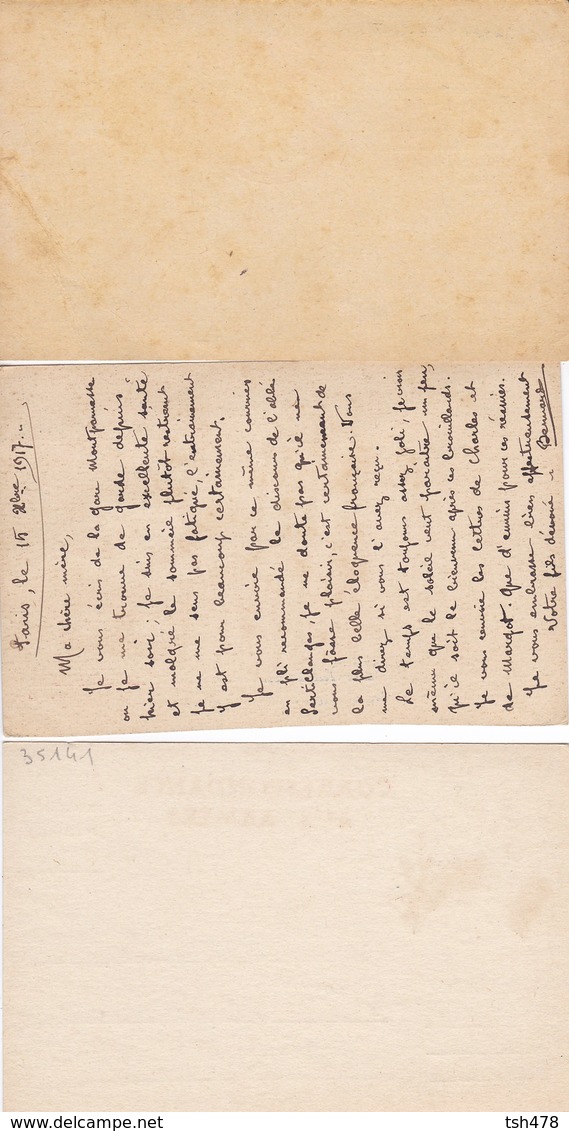 Paris, le 15 Xbre 1917
Ma chère mère,
Je vous écris de la gare Montparnasse
ou je me trouve de garde depuis
hier soir ; je suis en excellente santé
et malgré le sommeil plutôt restreint
je ne me sens pas fatigué, l'entrainement
y est pour beaucoup certainement.
Je vous envoie par ce même courrier
en pli recommandé le discours de l'abbé
Sertillanges, je ne doute pas qu'il ne
vous fasse plaisir, c'est certainement de
la plus belle éloquence française. Vous
me direz si vous l'avez reçu.
Le temps est toujours assez joli, je crois
même que le soleil veut paraître un peu,
qu'il soit le bienvenu après ces brouillards.
Je vous renvoie les lettres de Charles et
de Margot. Que d'ennuis pour ces
Je vous embrasse bien affectueusement
Votre fils dévoué
Bernard
35141
tsh478